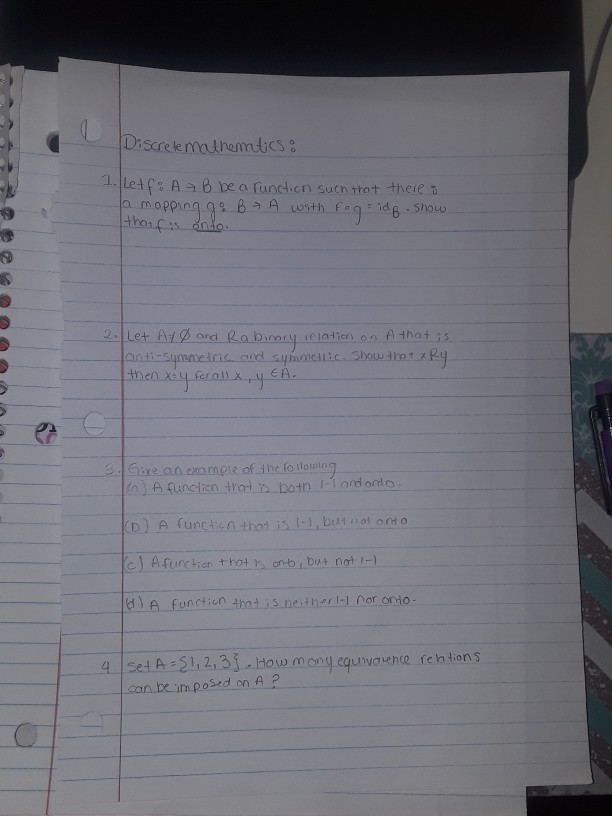 Discrete mathematics:
1. Let f: A → B be a function such that there is
a mapping g: B → A with f∘g = id_B. Show
that f is onto.
2. Let A≠∅ and R a binary relation on A that is
anti-symmetric and symmetric. Show that xRy
then x=y for all x, y ∈ A.
3. Give an example of the following
(a) A function that is both 1-1 and onto.
(b) A function that is 1-1, but not onto
(c) A function that is onto, but not 1-1
(d) A function that is neither 1-1 nor onto.
4 Set A = {1, 2, 3}. How many equivalence relations
can be imposed on A?